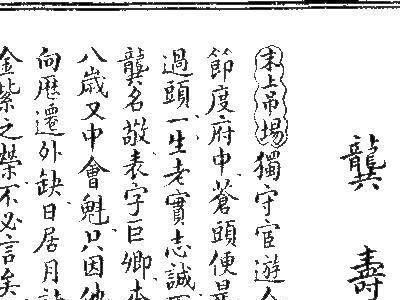 龔壽
末上吊場獨守宦遊
節度府中蒼頭便是
過頭一生老實志誠
龔名敬表字巨卿本
八歲又中會魁只因他
向歷遷外缺日居月諸
金紫之榮不必言矣